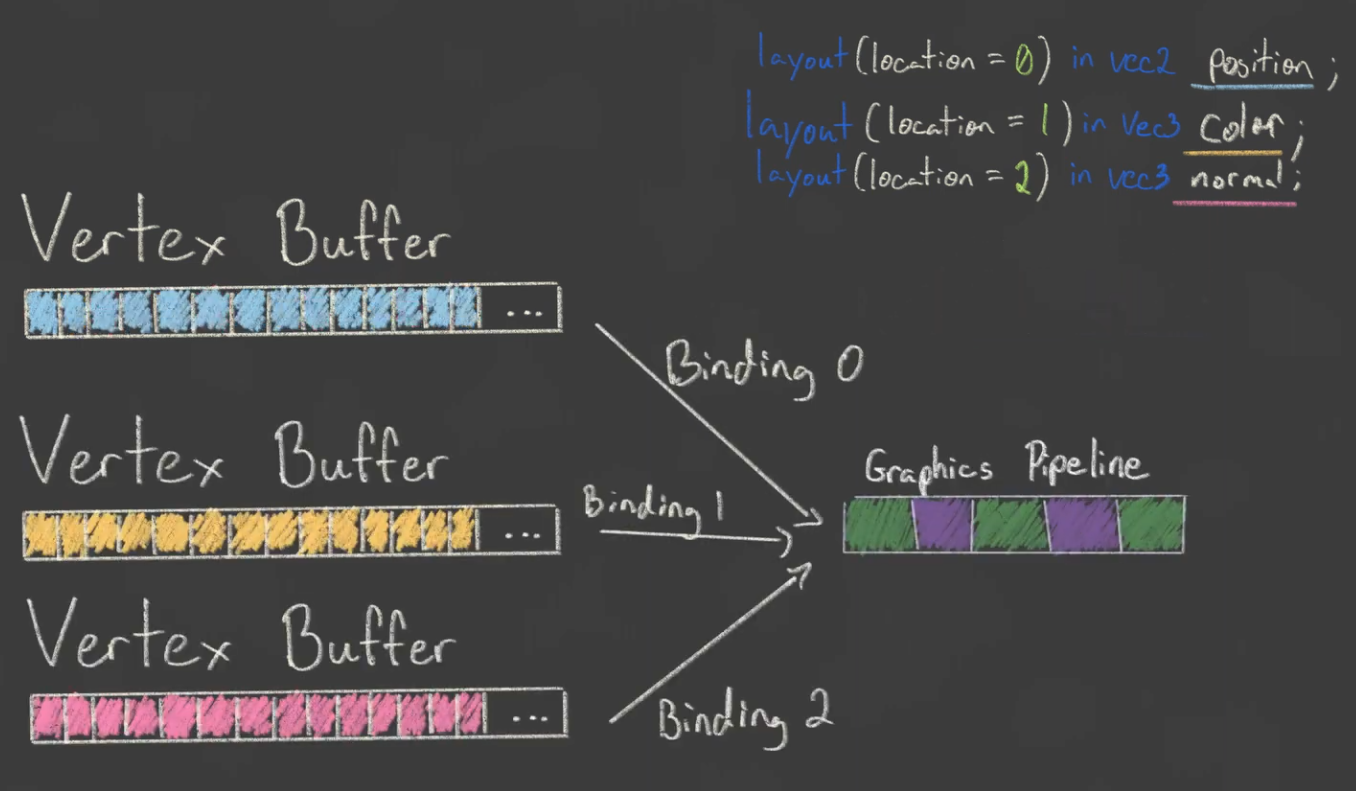 layout (location = 0) in vec2 position ;
layout (location = 1) in vec3 color ;
layout (location = 2) in vec3 normal ;
Vertex Buffer
...
Binding 0
Vertex Buffer
...
Binding 1
Graphics Pipeline
Vertex Buffer
...
Binding 2